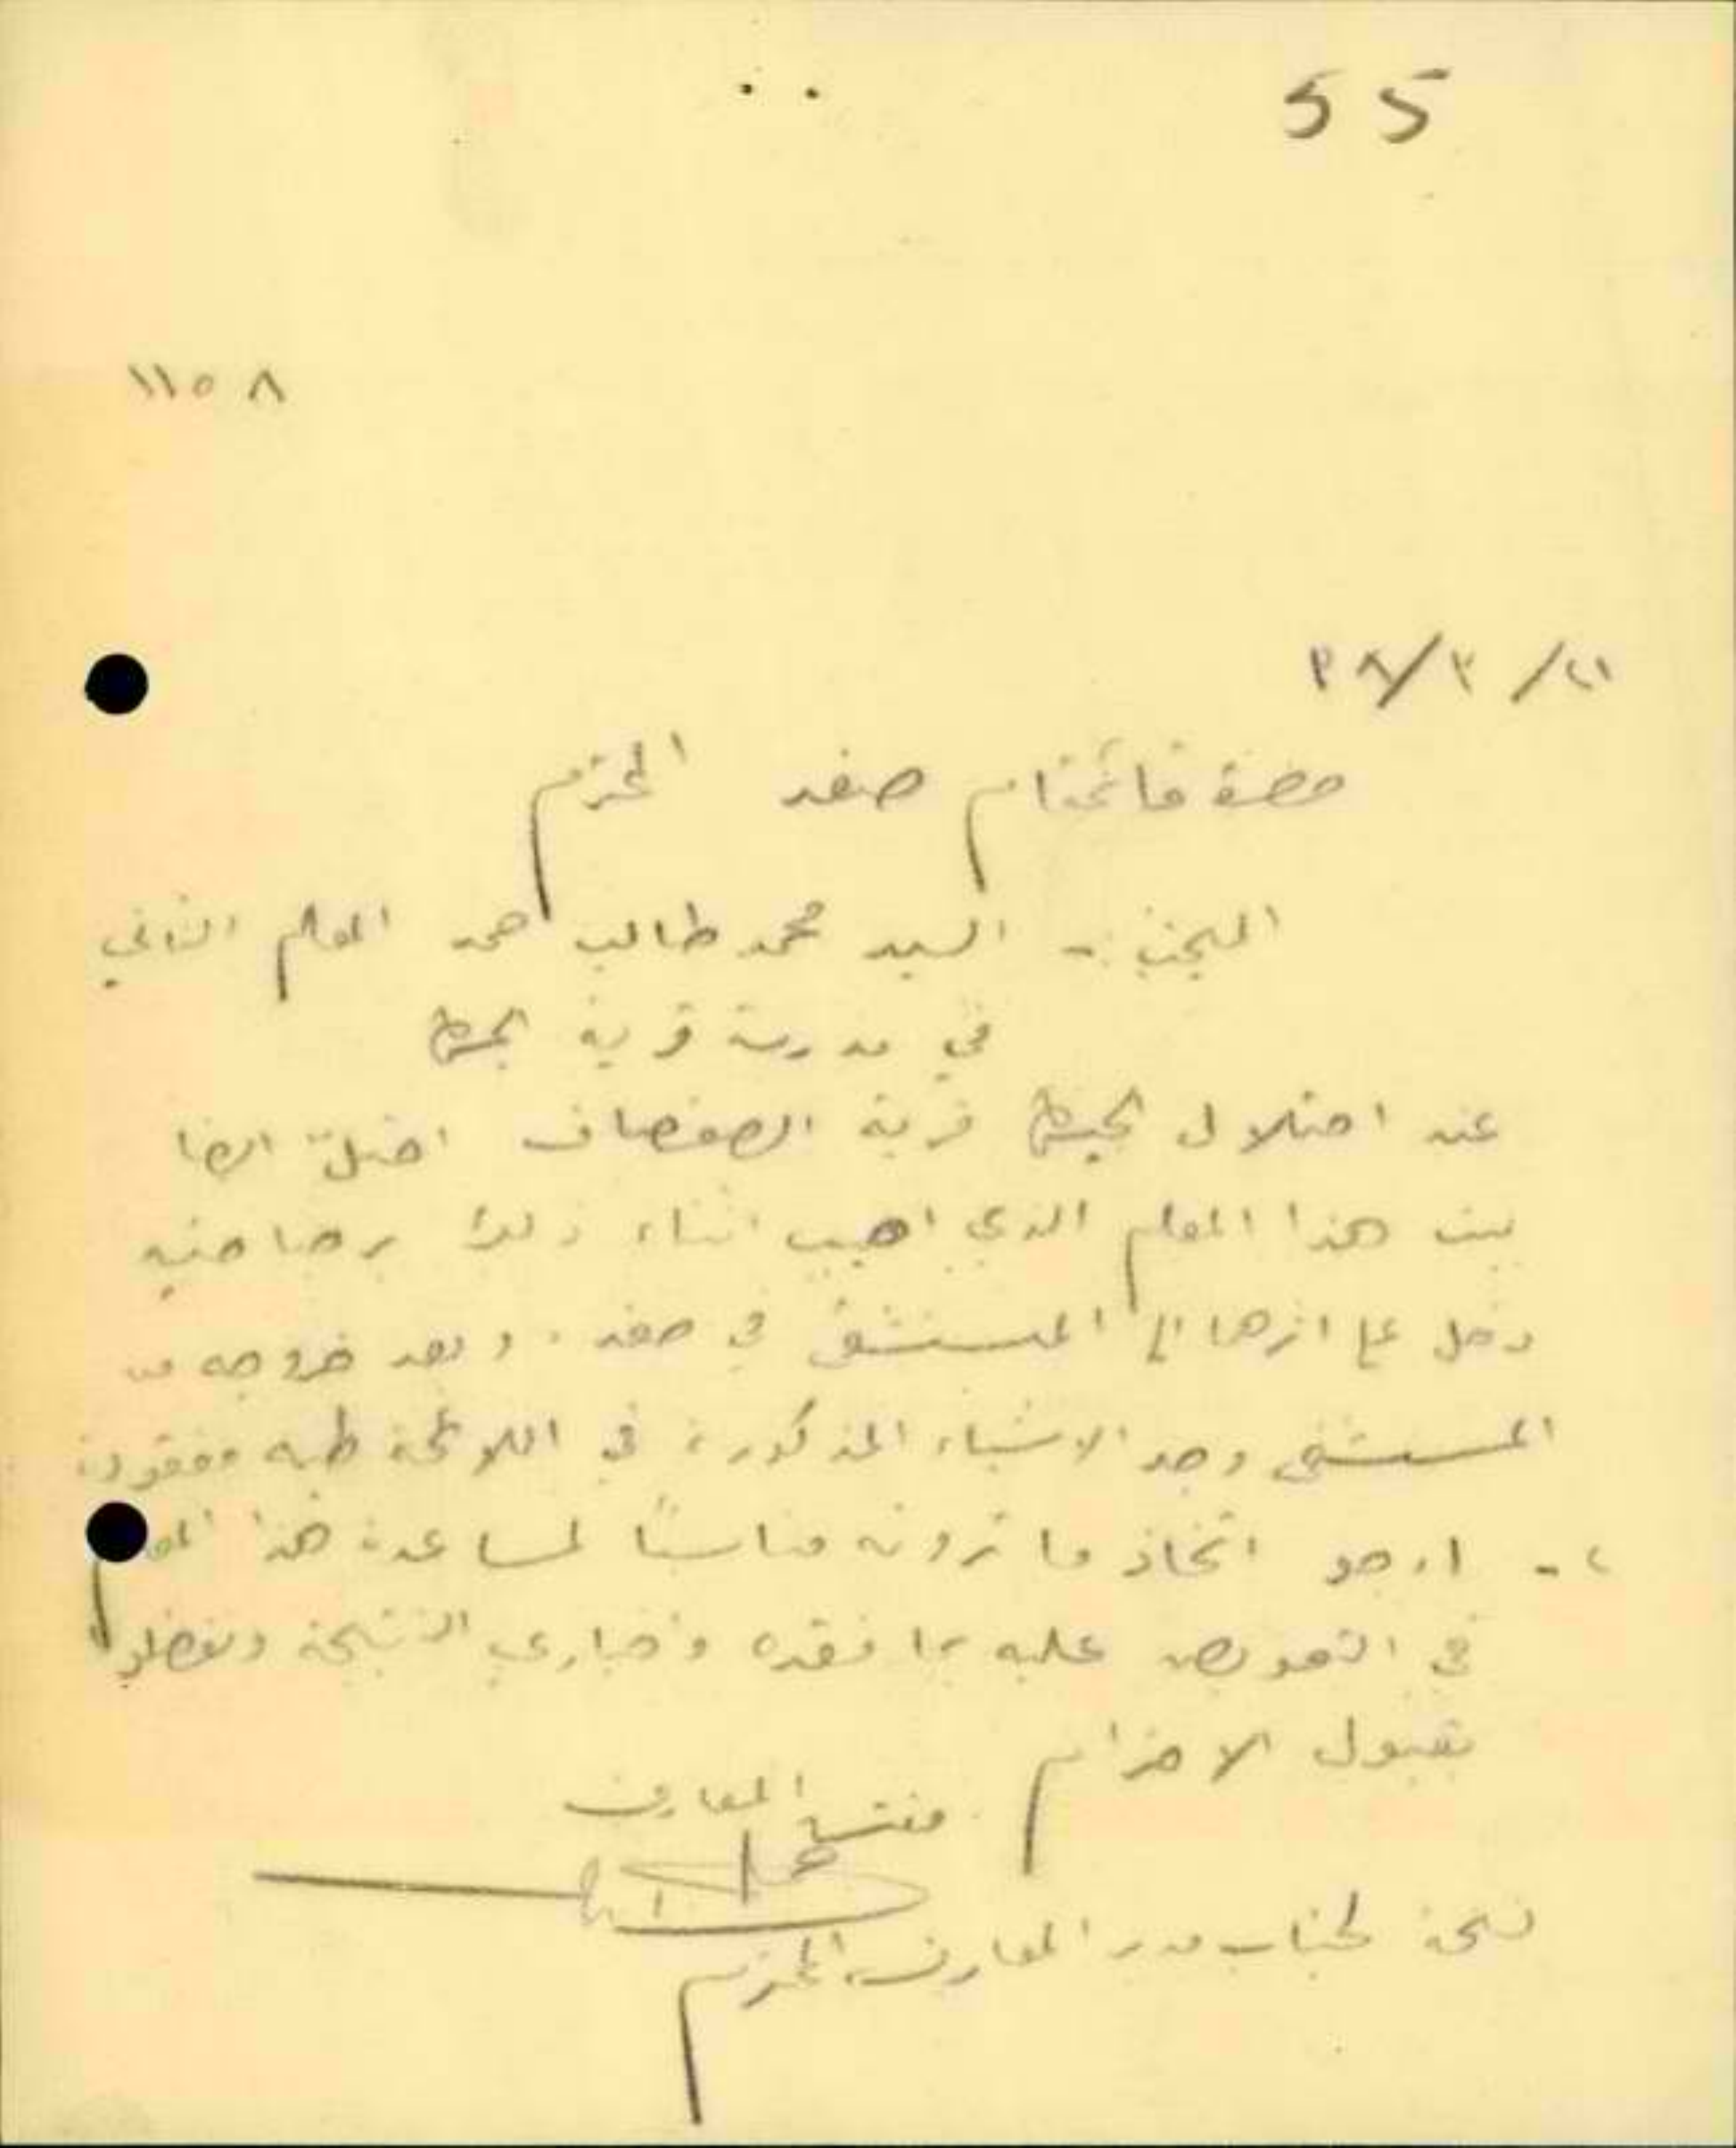 55
١١٥٨
٢١/ ٣/ ٣٨
حضرة قائمقام صفد المحترم
المبحث :- السيد محمد طالب حمد المعلم الثاني
في مدرسة قرية الجش
عند احتلال الجيش قرية الصفصاف احتل ايضا
بيت هذا المعلم الذي اصيب اثناء ذلك برصاصتين
دخل على اثرها الى المستشفى في صفد . وبعد خروجه من
المستشفى وجد الاشياء المذكورة في اللائحة طيه مفقودة
٢ - ارجو اتخاذ ما ترونه مناسبًا لمساعدة هذا المعلم
في التعويض عليه بما فقده واخباري النتيجة وتفضلوا
بقبول الاحترام
مفتش المعارف
نسخة لجناب مدير المعارف المحترم